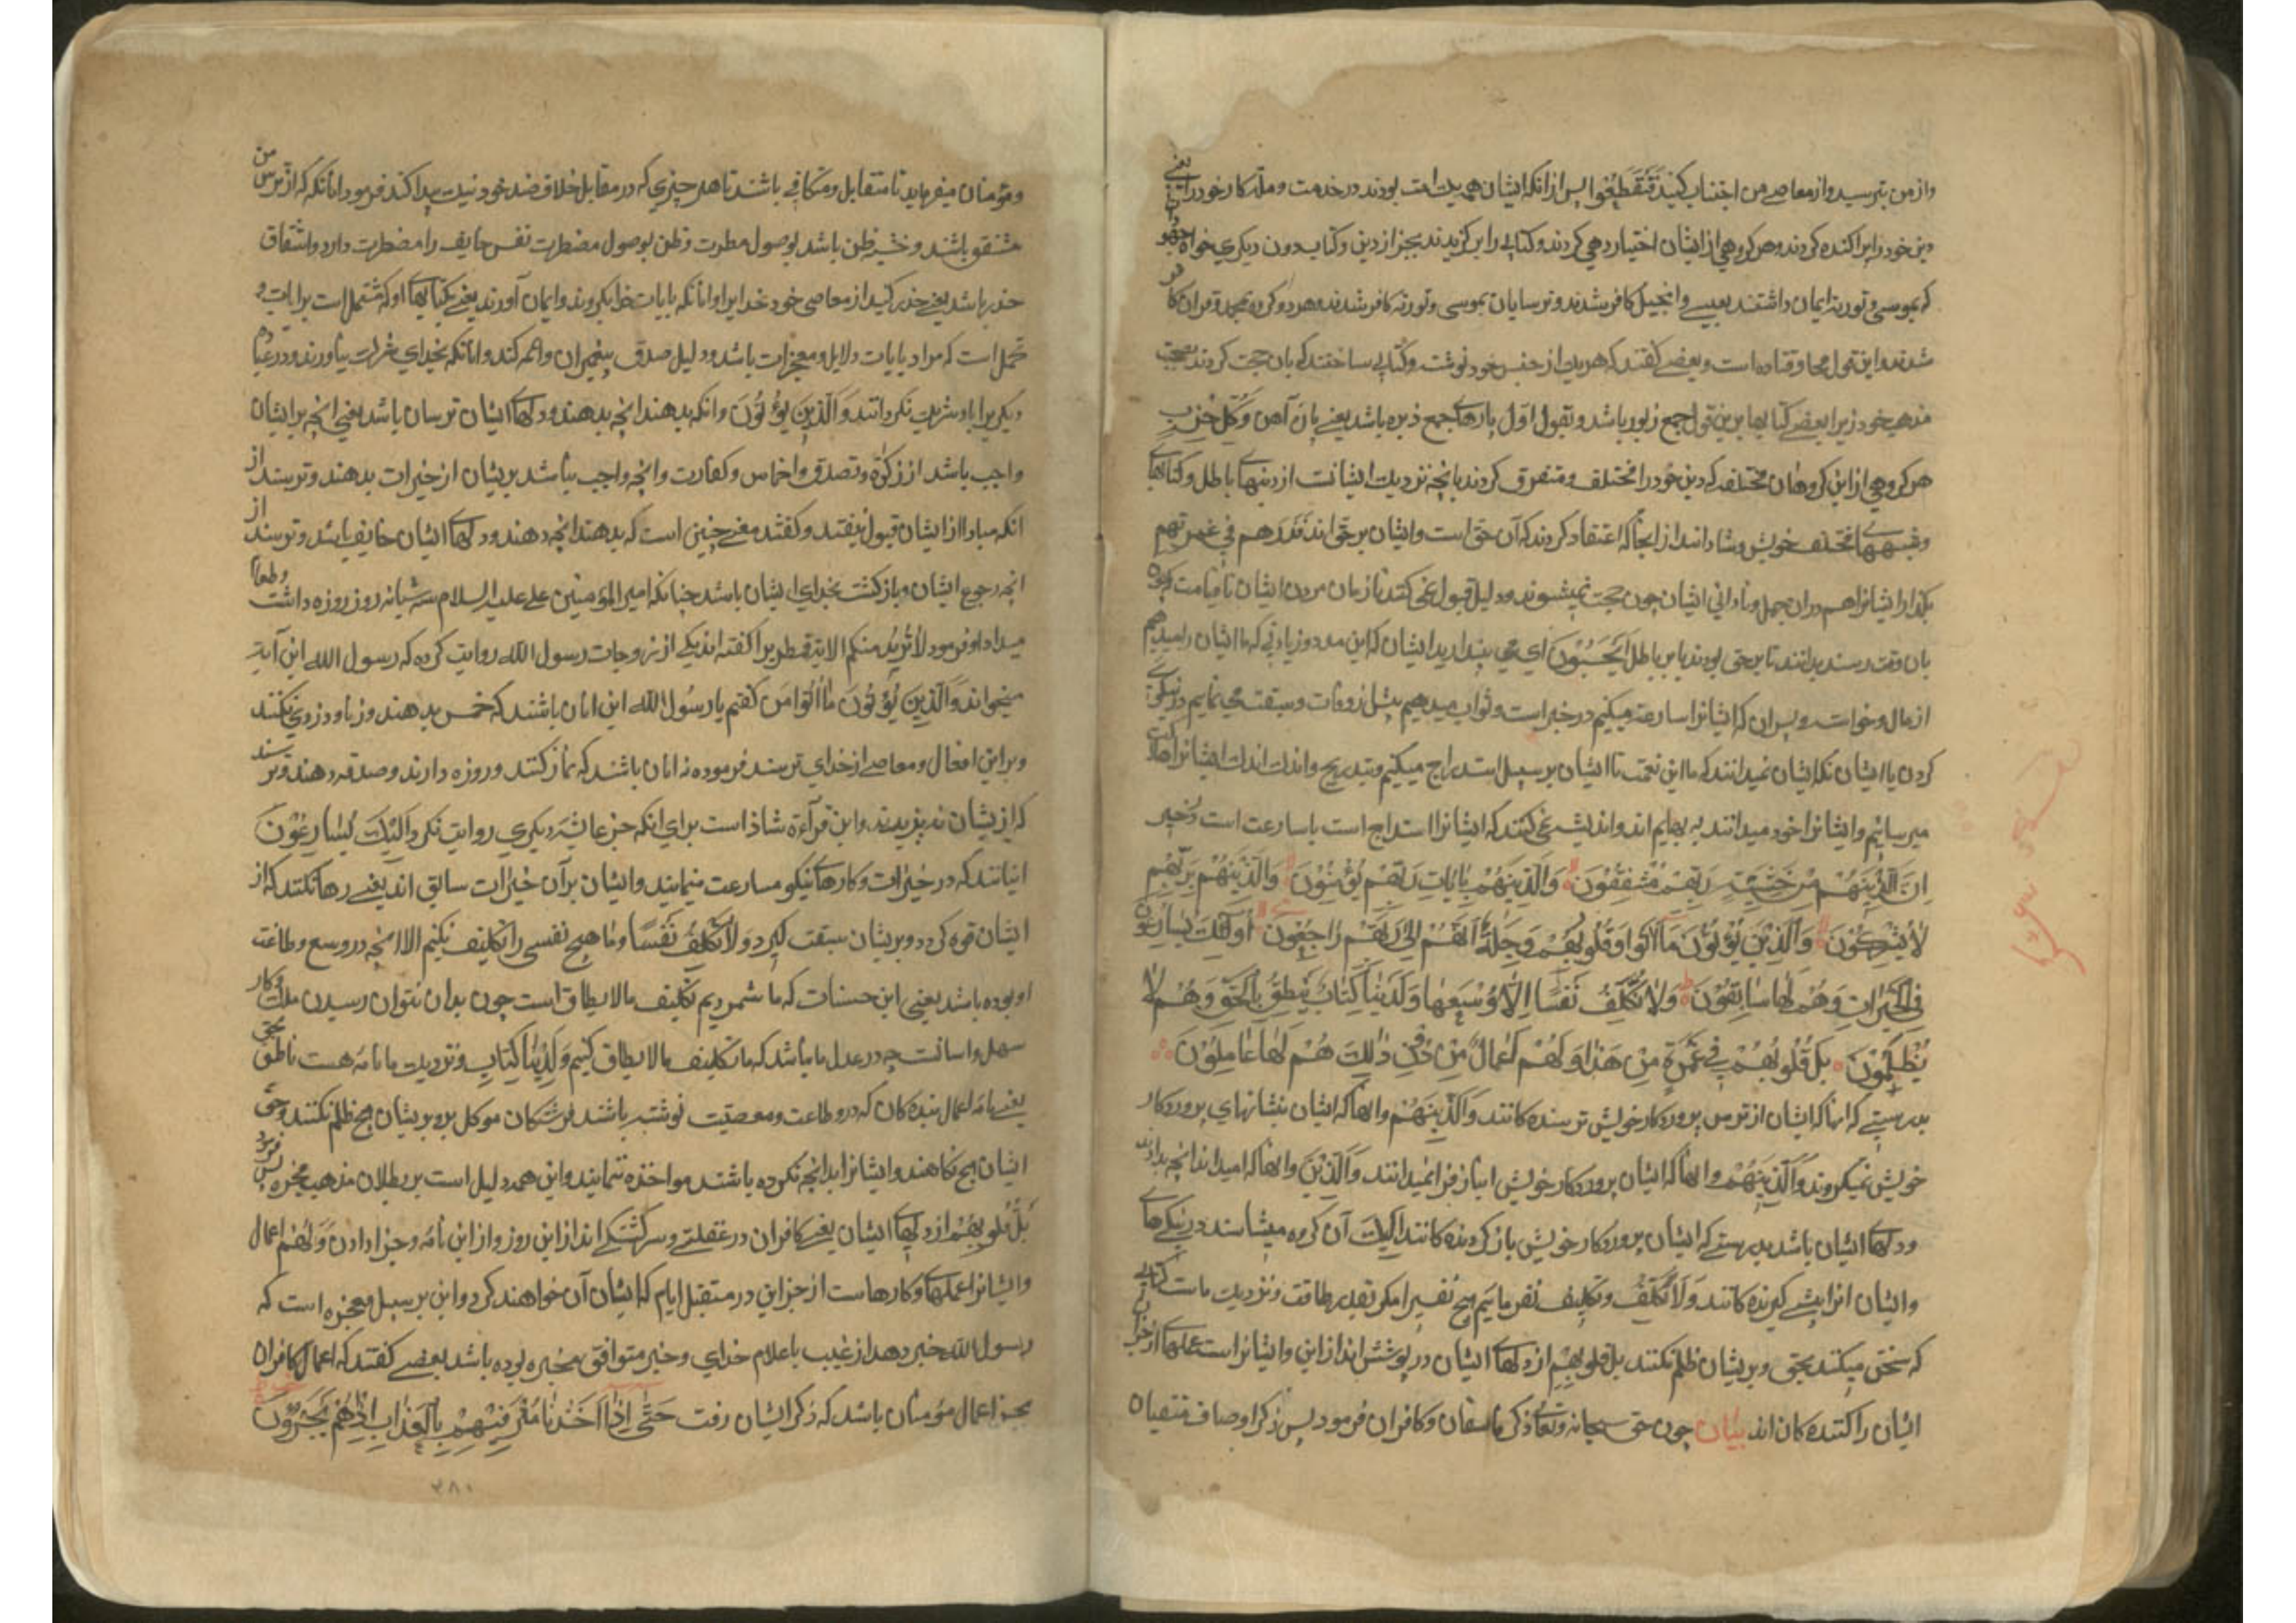 واز من بترسید واز معاصی من اجتناب کنید فَتَقَطَّعُوا پس از انکه ایشان همه یك امت بودند در خدمت وملة کار خود را یعنی
دین خود را پراکنده کردند وهر کروهی از ایشان اختیار دهی کردند وکتابی را برکزیدند بجز از دین وکتاب دون دیکری خواه جهو
که بموسی وتوریة ایمان داشتند بعیسی وانجیل کافر شدند وترسایان بموسی وتوریة کافر شدند وهر دو کروه بمحمد وقران کا
شدند این قول مجاو قتاده است وبعضی کفتند که هر یك از جنس خود نوشت وکتابی ساختند که بان حجت کردند بصحت
مذهب خود زیرا بعضی کتابها برین قول جمع زبور باشد وبقول اول پارهای جمع زبره باشد یعنی پاره آهن وَکُلُّ حِزْبٍ
هر کروهی از این کروهان مختلف که دین خود را مختلف ومتفرق کردند بانچه نزدیك ایشانست از دینهای باطل وکتابهای
وشبههای مختلف خویش وشادانند از انجا که اعتقاد کردند که آن حق است وایشان برحق اند فَذَرْهُم فی غمرتهم
بکذار ایشانرا هم دران جهل ونادانی ایشان چون حجت نمیشنوند ودلیل قبول نمی کنند تا زمان مردن ایشان تا قیامت که چون
بان وقت رسند بدانند تا برحق بودند یا بر باطل اَیَحْسَبُونَ ای می پندارید ایشان که این مدد وزیادتی که ما ایشان را میدهیم
از مال وخواسته وپسران که ایشانرا مسارعة میکنیم در خیرات وثواب میدهیم پیش از وفات وسبقت می نماییم در نیکوی
کردن با ایشان نکه ایشان نمیدانند که ما این نعمت با ایشان بر سبیل استدراج میکنیم وبتدریج واندك اندك ایشانرا هلاکت
میرسانیم وایشانرا خود میدانند به بهایم اند واندیشه نمی کنند که ایشانرا استدراج است یا مسارعت است در خیر
اِنَّ الَّذِینَهُمْ مِنْ خَشْیَتِ رَبِّهِمْ مُشْفِقُونَ وَالَّذِینَهُمْ بِایَاتِ رَبِّهِمْ یُؤْمِنُونَ وَالَّذِینَهُمْ بِرَبِّهِمْ
لَا یُشْرِکُونَ وَالَّذِینَ یُؤْتُونَ مَا اٰتَوْا وَقُلُوبُهُمْ وَجِلَةٌ اَنَّهُمْ اِلٰی رَبِّهِمْ رَاجِعُونَ اُولٰئِكَ یُسَارِعُونَ
فِی الْخَیْرَاتِ وَهُمْ لَهَا سَابِقُونَ وَلَا نُکَلِّفُ نَفْسًا اِلَّا وُسْعَهَا وَلَدَیْنَا کِتَابٌ یَنْطِقُ بِالْحَقِّ وَهُمْ لَا
یُظْلَمُونَ بَلْ قُلُوبُهُمْ فِی غَمْرَةٍ مِنْ هٰذَا وَلَهُمْ اَعْمَالٌ مِنْ دُونِ ذٰلِكَ هُمْ لَهَا عَامِلُونَ
بدرستی که انها که ایشان از ترس پروردکار خویش ترسنده کانند وَالَّذِینَهُمْ وانها که ایشان بنشانهای پروردکار
خویش نمیکروند وَالَّذِینَهُمْ وانها که ایشان پروردکار خویش انباز فرا نمیدانند وَالَّذِینَ وانها که امیدانند انچه بدادند
ودلهای ایشان باشد بدرستی که ایشان پروردکار خویش باز کردنده کانند اُولئِكَ آن کروه میشتابند در نیکی های
وایشان انرا پیشی کیرنده کانند وَلَا نُکَلِّفُ وتکلیف نفرماییم هیچ نفسی را مکر بقدر طاقت ونزدیك ماست کتابی
که سخن میکند بحق وبر یشان ظلم نکنند بل قلوبهم از دلهای ایشان در پوشش اند از این وایشانراست عملهای از جز ان
ایشان را کننده کان اند بیان چون حق سبحانه وتعالی ذکر فاسقان وکافران فرمود پس ذکر اوصاف متقیان
ومؤمنان میفرماید تا متقابل ومتکافی باشند تا هر چیزی که در مقابل خلاف ضد خود نیك پیدا کند فرمود انانکه که از ترس من
مشفق باشند وخشیه ظن باشد بوصول مطرت وظن بوصول مضطرت نفس خایف را مضطرت دارد واشفاق
حذر باشد یعنی حذر کنید از معاصی خود خدایرا وانانکه بایات خدا بکروند وایمان آورند یعنی بکتابهای او که مشتمل است بر ایات و
محمل است که مراد بایات دلایل ومعجزات باشد ودلیل صدق پیغمبران وائمه کند وانانکه بخدای شرك نیاورند ودر عبادة
دیکریرا باو شریك نکردانند وَالَّذِینَ یُؤْتُونَ وانکه بدهند انچه بدهند ودلهای ایشان ترسان باشد یعنی انچه بر ایشان
واجب باشد از زکوة وتصدق واخماس وکفارت وانچه واجب نباشد بریشان از خیرات بدهند وترسند از
انکه مبادا از ایشان قبول نیفتد وکفتند معنی چنین است که بدهند انچه دهند ودلهای ایشان خایف باشد وترسند از
انچه رجوع ایشان وبازکشت بخدای ایشان باشد چنانکه امیر المؤمنین علی علیه السلام سه شبانه روز روزه داشت وطعام
میداد وفرمود لَا نُرِیدُ مِنْکُم الایة قمطریرا کفته اند یکی از زوجات رسول الله روایت کرده که رسول الله این آیة
میخواند وَالَّذِینَ یُؤْتُونَ مَا اٰتَوْا من کفتم یا رسُول الله این انان باشند که خمس بدهند وزنا ودزدی نکنند
وبر این افعال ومعاصی از خدای ترسند فرموده نه انان باشند که نماز کنند وروزه دارند وصدقه دهند وترسند
که از یشان نپذیرند واین قرآءة شاذ است برای انکه جز عایشه دیکری روایت نکرد اُولٰئِكَ یُسَارِعُونَ
اینانند که در خیرات وکارهای نیکو مسارعت مینمایند وایشان برآن خیرات سابق اند یعنی رها نکنند که از
ایشان فوة کردد وبریشان سبقت کیرد وَلَا نُکَلِّفُ نَفْسًا وما هیچ نفسی را تکلیف نکنیم الا انچه در وسع وطاعت
او بوده باشد یعنی این حسنات که ما شمردیم تکلیف ما لا یطاق است چون بدان نتوان رسیدن ملك وکار
سهل واسانست چه در عدل ما نباشد که ما تکلیف ما لا یطاق کنیم وَلَدَیْنَا کِتَابٌ ونزدیك ما نامه هست ناطق بحق
یعنی نامه اعمال بنده کان که درو طاعت ومعصیت نوشته باشند فرشتکان موکل برو بریشان هیچ ظلم نکنند وحق
ایشان هیچ نکاهند وایشانرا بدانچه نکرده باشند مواخذه ننمایند واین همه دلیل است بر بطلان مذهب مجبره پس فرمود
بَلْ قُلُوبُهُمْ از دلهای ایشان یعنی کافران در غفلت وسرکشتکی اند از این روز واز این نامه وجزا دادن وَلَهُمْ اعمال
وایشانرا عملهای وکارهاست از جز این در مستقبل ایام که ایشان آن خواهند کرد واین بر سبیل معجزه است که
رسول الله خبر دهد از غیب باعلام خدای وخبر متوافق مخبره بوده باشد بعضی کفتند که اعمال کافران
بجز اعمال مؤمنان باشد که ذکر ایشان رفت حَتّٰی اِذَا اَخَذْنَا مُتْرَفِیهِمْ بِالْعَذَابِ اِذَا هُمْ یَجْئَرُونَ
٣٨٠